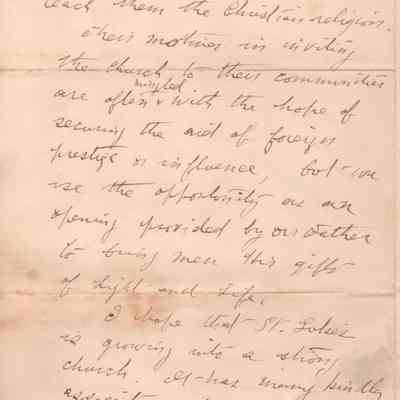 teach them the Christian religion.
Their motives in inviting
the church to their communities
mingled
are often with the hope of
securing the aid of foreign
prestige or influence, but we
use the opportunity as an
opening provided by our Father
to bring men His gifts
of Light and Life.
I hope that St. Luke's
is growing into a strong
church. It has many kindly